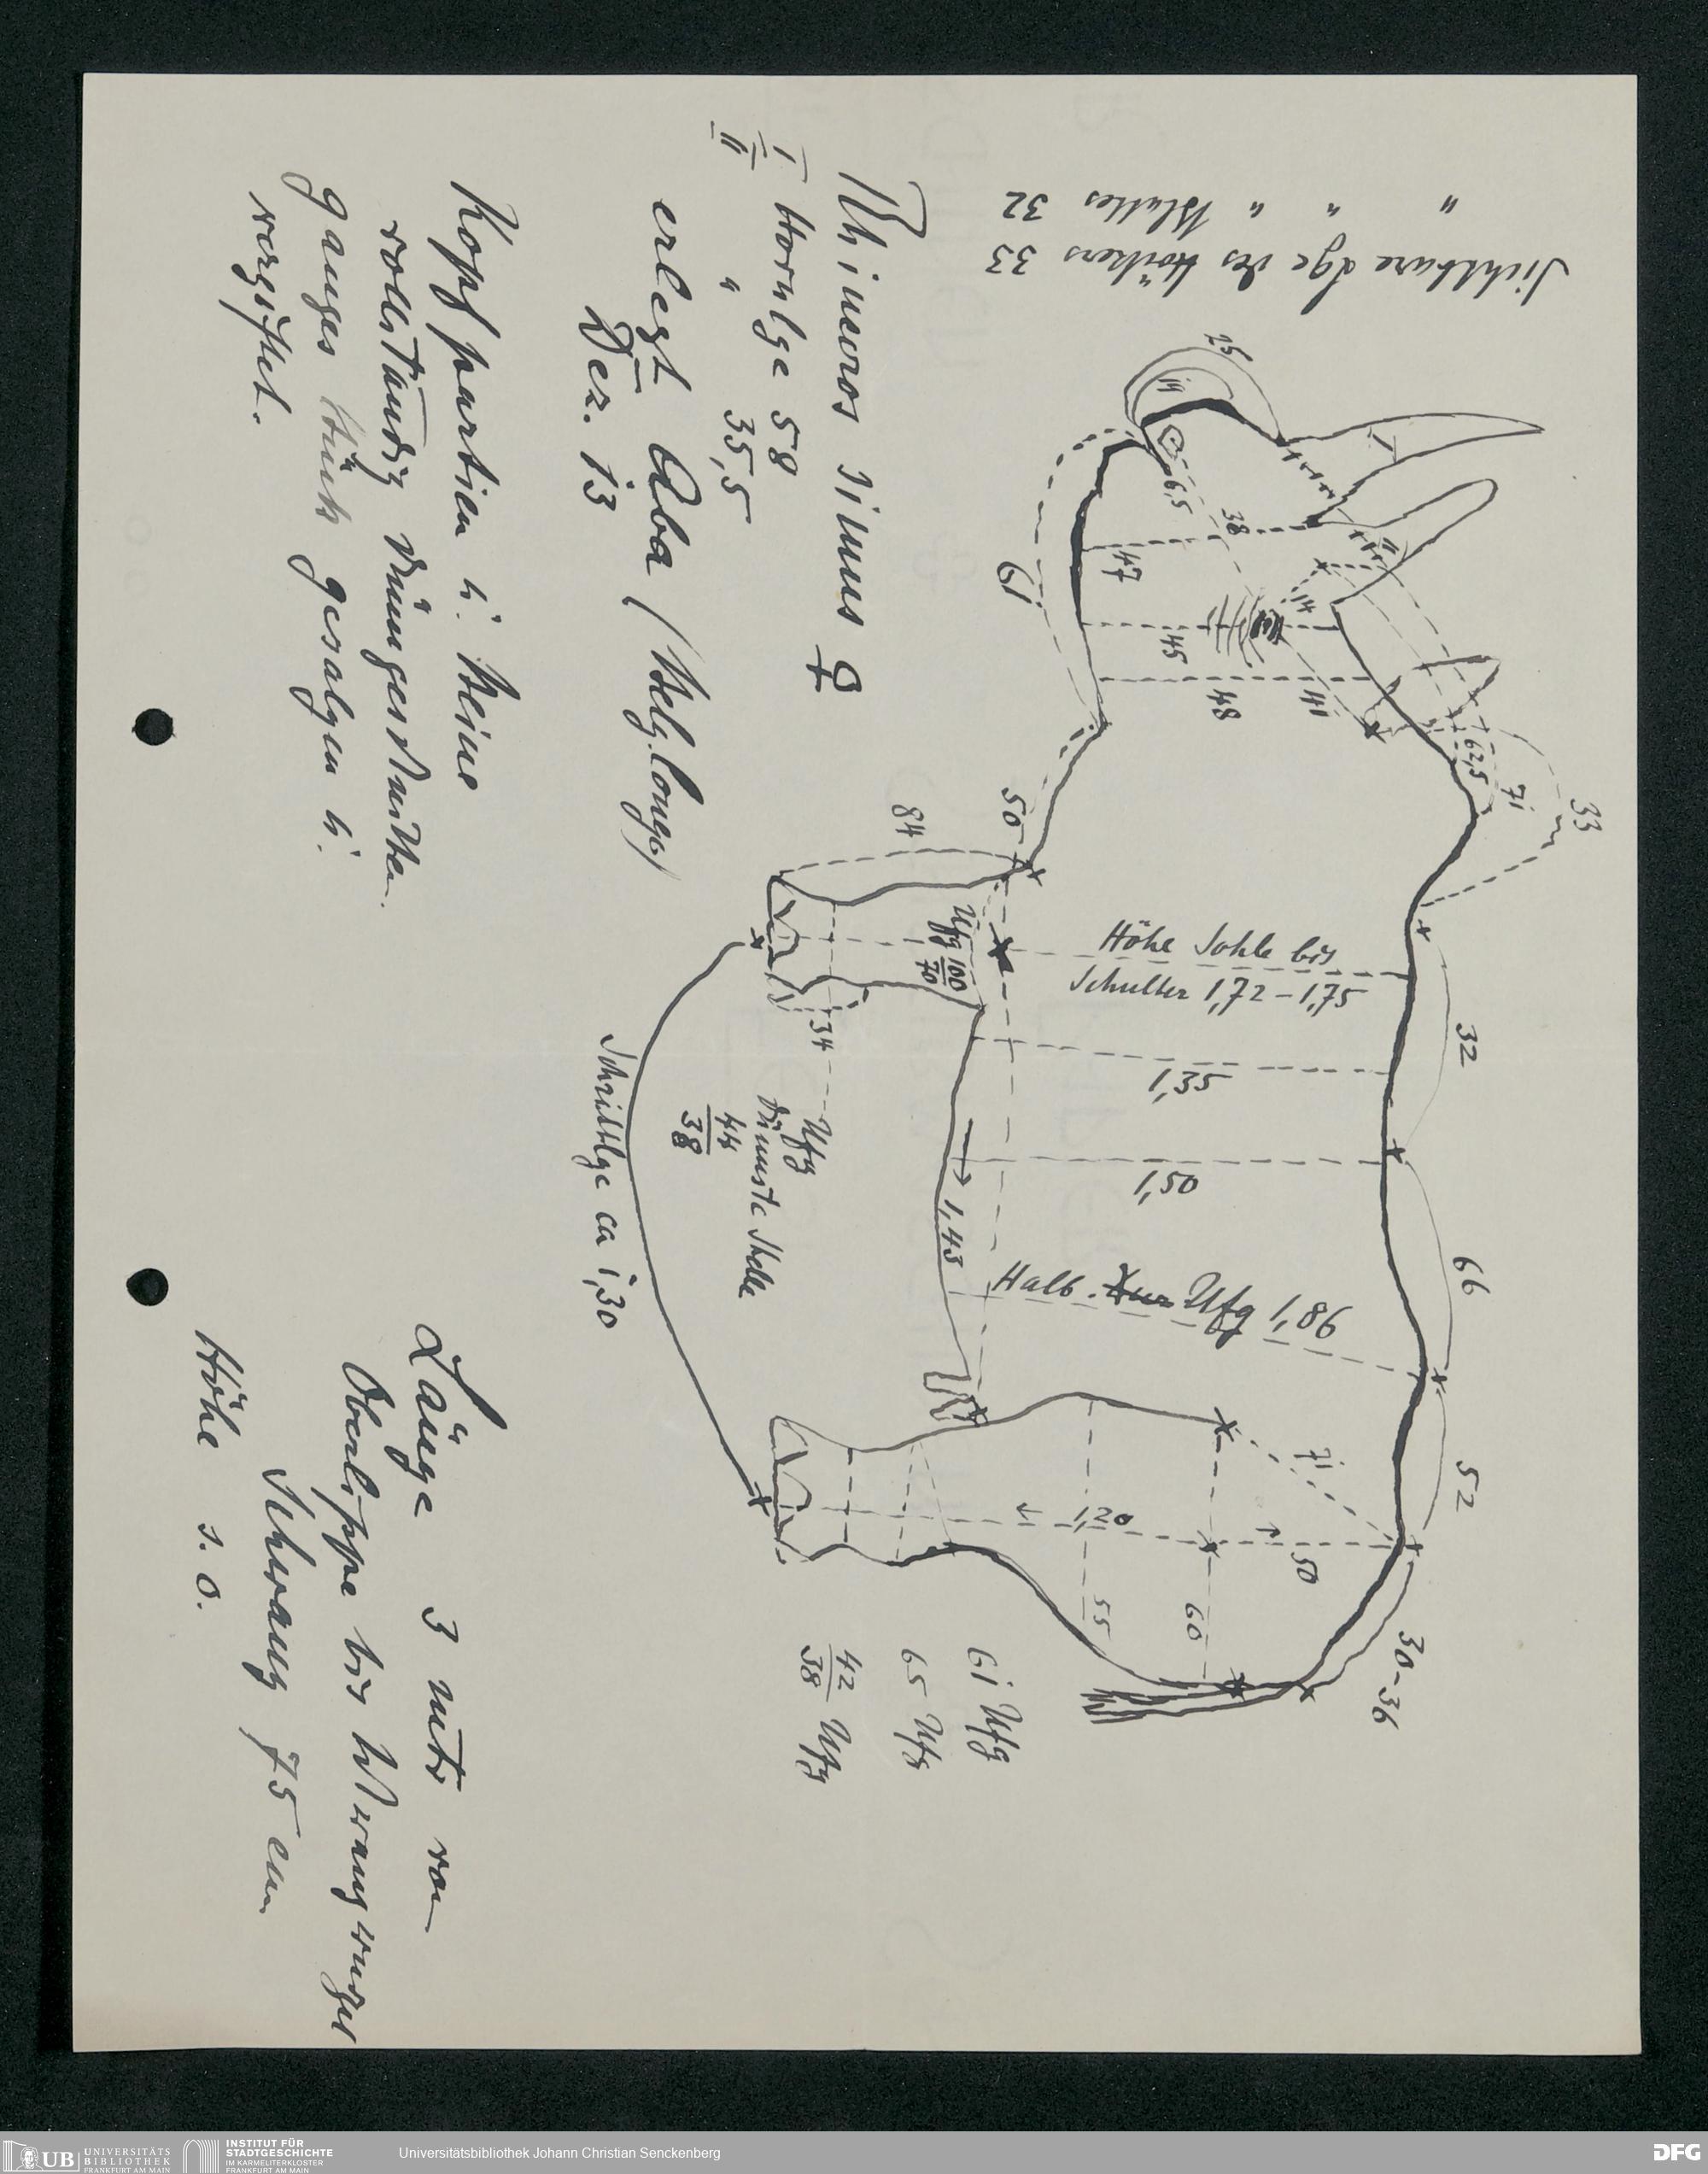 Sichtbare Lge des Höckers 33
" " " Blattes 32
33
71
62,5
32
66
52
30-36
I
II
14
14
38
47
45
48
6,5
61
50
84
Höhe Sohle bis
Schulter 1,72-1,75
1,35
1,50
Halb. Ufg 1,86
71
50
1,20
60
55
Ufg 100
70
34
1,43
61 Ufg
65 Ufg
42
38 Ufg
Ufg
dünnste Stelle
44
38
Schrittlge ca 1,30
Rhinoceros simus ♀
I Hornlge 58
II " 35,5
erlegt Aba (Belg. Congo)
Dez. 13
Kopfpartien u. Beine
vollständig dünngeschnitten
ganzes Stück gesalzen u.
vergiftet.
Länge 3 mtr von
Oberlippe bis Schwanzwurzel
Schwanz 75 cm
Höhe s. o.
UB UNIVERSITÄTS
BIBLIOTHEK
FRANKFURT AM MAIN
INSTITUT FÜR
STADTGESCHICHTE
IM KARMELITERKLOSTER
FRANKFURT AM MAIN
Universitätsbibliothek Johann Christian Senckenberg
DFG